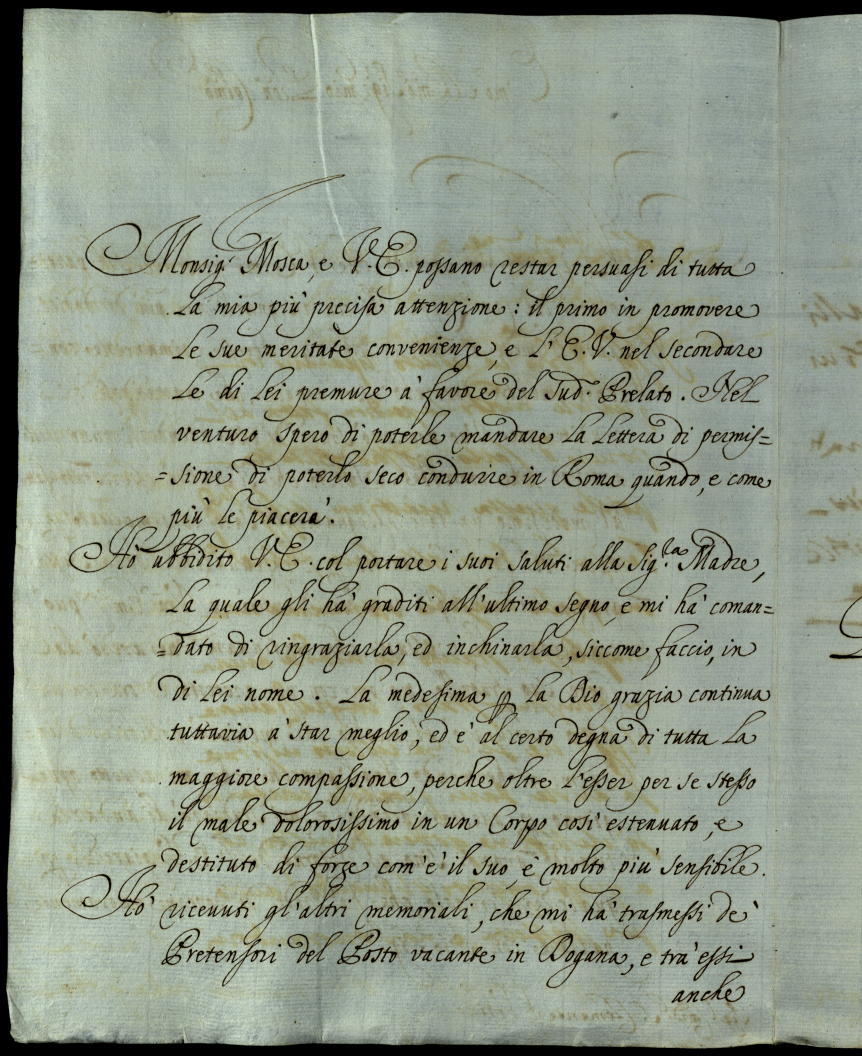 Monsig.r Mosca, e V. E. possano restar persuasi di tutta
la mia più precisa attenzione: il primo in promovere
le sue meritate convenienze, e l'E. V. nel secondare
le di lei premure à favore del sud.o Prelato. Nel
venturo spero di poterle mandare la lettera di permis=
=sione di poterlo seco condurre in Roma quando, e come
più le piacerà.
Hò ubbidito V. E. col portare i suoi saluti alla Sig.ra Madre,
la quale gli hà graditi all'ultimo segno, e mi hà coman=
=dato di ringraziarla, ed inchinarla, siccome faccio, in
di lei nome. La medesima p la Dio grazia continua
tuttavia à star meglio, ed è al certo degna di tutta la
maggiore compassione, perche oltre l'esser per se stesso
il male dolorosissimo in un Corpo così estenuato, e
destituto di forze com'è il suo, è molto più sensibile.
Hò ricevuti gl'altri memoriali, che mi hà trasmessi de'
Pretensori del Posto vacante in Dogana, e trà essi
anche